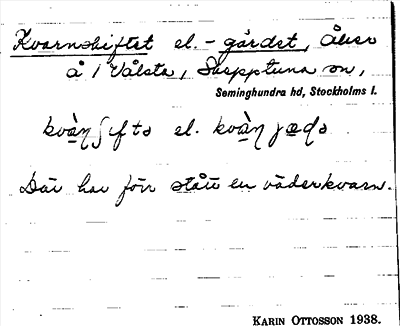 Kvarnskiftet el. - gärdet, Åker
å 1 Vålsta, Skepptuna sn,
Seminghundra hd, Stockholms l.
kvàɳ ʃifte el. kvàɳ jæḍə
Där har förr stått en väderkvarn.
KARIN OTTOSSON 1938.